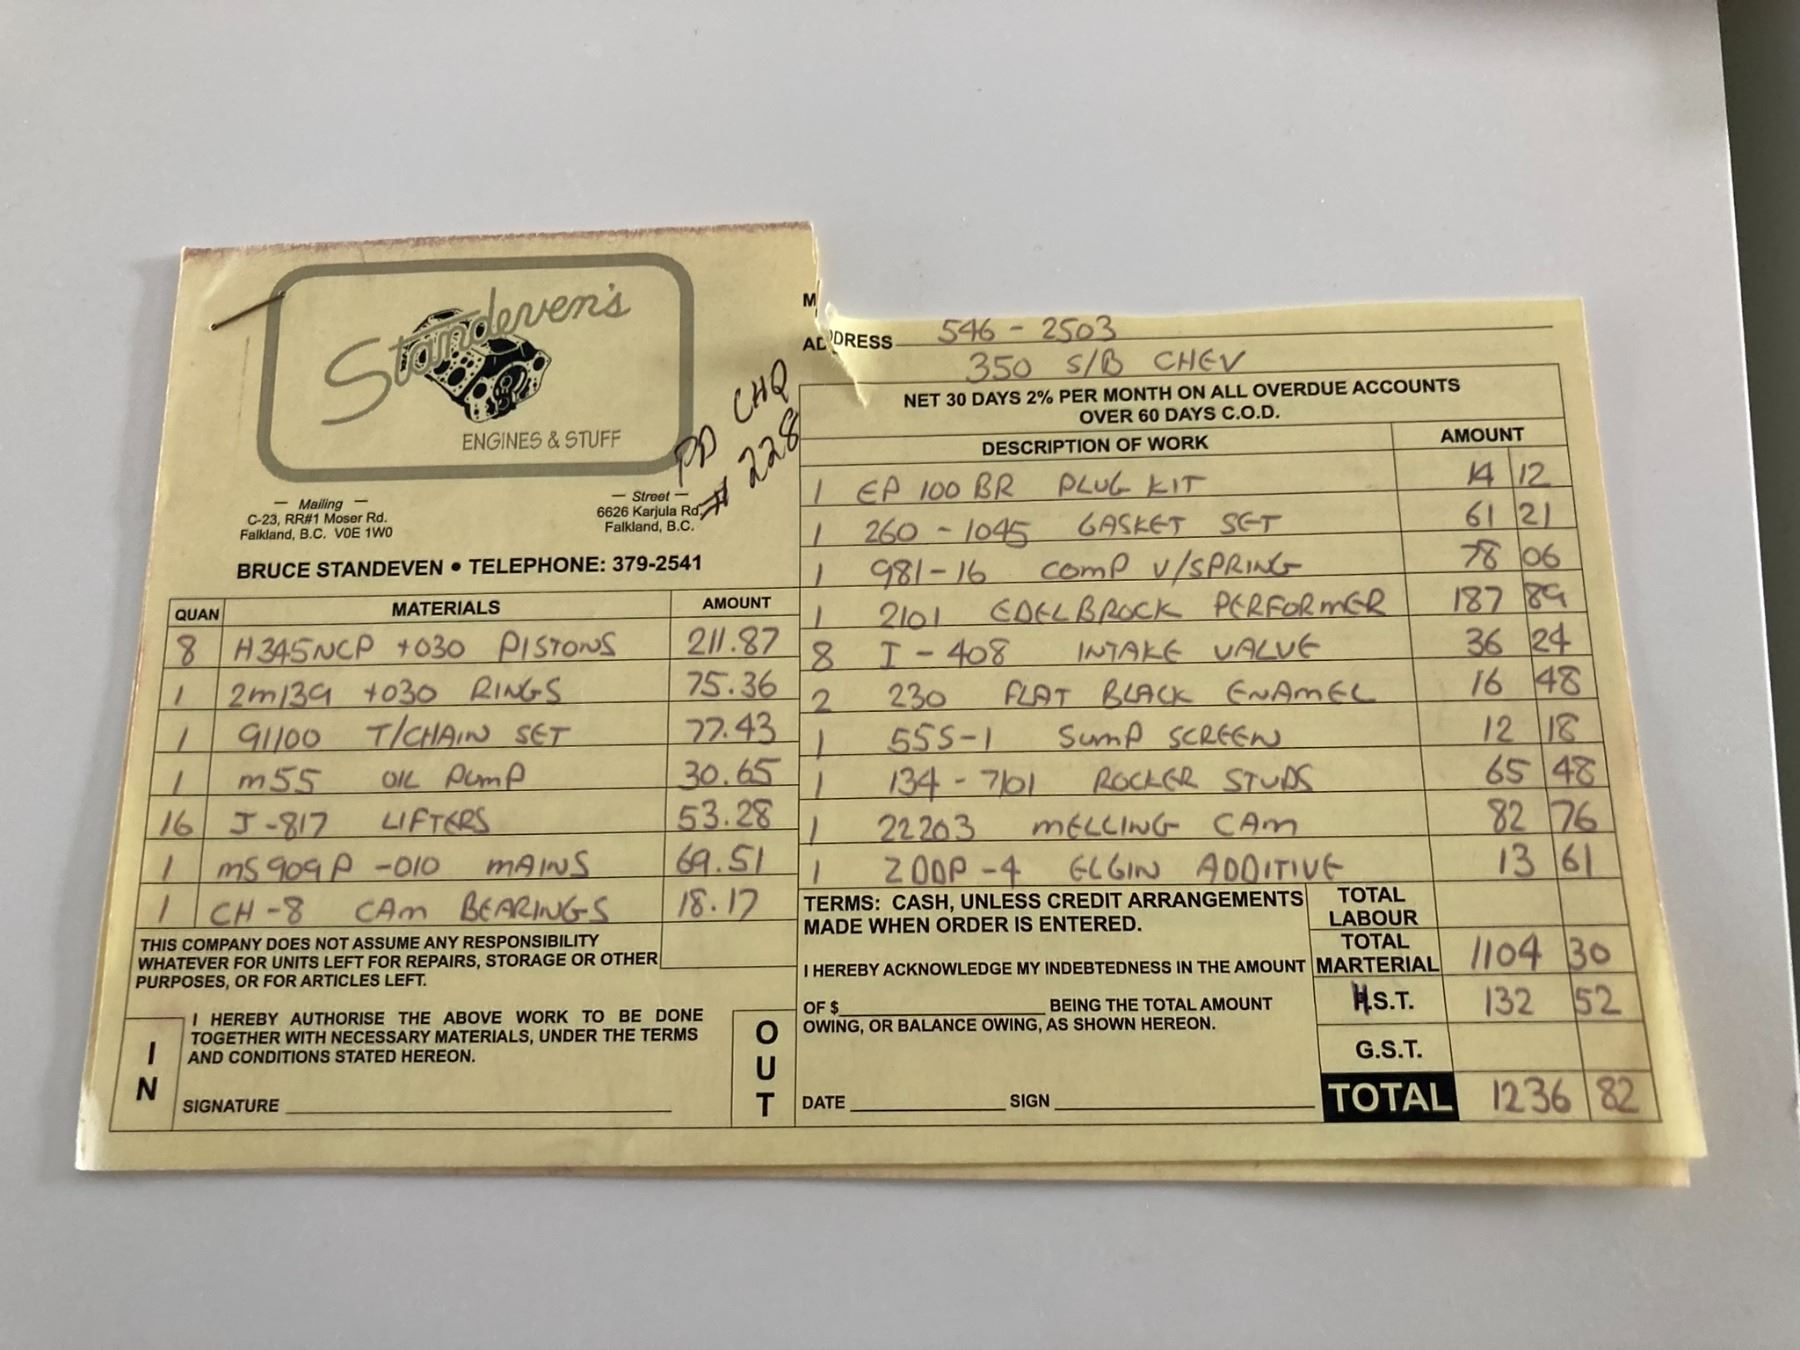 Standeven's
ENGINES & STUFF
PD CHQ
# 228
— Mailing —
C-23, RR#1 Moser Rd.
Falkland, B.C. V0E 1W0
— Street —
6626 Karjula Rd.
Falkland, B.C.
BRUCE STANDEVEN • TELEPHONE: 379-2541
QUAN MATERIALS AMOUNT
8 H345NCP +030 PISTONS 211.87
1 2M139 +030 RINGS 75.36
1 91100 T/CHAIN SET 77.43
1 M55 OIL PUMP 30.65
16 J-817 LIFTERS 53.28
1 MS909P -010 MAINS 69.51
1 CH-8 CAM BEARINGS 18.17
THIS COMPANY DOES NOT ASSUME ANY RESPONSIBILITY
WHATEVER FOR UNITS LEFT FOR REPAIRS, STORAGE OR OTHER
PURPOSES, OR FOR ARTICLES LEFT.
IN
I HEREBY AUTHORISE THE ABOVE WORK TO BE DONE
TOGETHER WITH NECESSARY MATERIALS, UNDER THE TERMS
AND CONDITIONS STATED HEREON.
SIGNATURE
OUT
M
ADDRESS 546-2503
350 S/B CHEV
NET 30 DAYS 2% PER MONTH ON ALL OVERDUE ACCOUNTS
OVER 60 DAYS C.O.D.
DESCRIPTION OF WORK AMOUNT
1 EP 100 BR PLUG KIT 14 12
1 260-1045 GASKET SET 61 21
1 981-16 COMP V/SPRING 78 06
1 2101 EDELBROCK PERFORMER 187 89
8 I-408 INTAKE VALVE 36 24
2 230 FLAT BLACK ENAMEL 16 48
1 55S-1 SUMP SCREEN 12 18
1 134-7101 ROCKER STUDS 65 48
1 22203 MELLING CAM 82 76
1 ZDDP-4 ELGIN ADDITIVE 13 61
TERMS: CASH, UNLESS CREDIT ARRANGEMENTS
MADE WHEN ORDER IS ENTERED.
I HEREBY ACKNOWLEDGE MY INDEBTEDNESS IN THE AMOUNT
OF $ BEING THE TOTAL AMOUNT
OWING, OR BALANCE OWING, AS SHOWN HEREON.
DATE SIGN
TOTAL
LABOUR
TOTAL
MARTERIAL 1104 30
H.S.T. 132 52
G.S.T.
TOTAL 1236 82